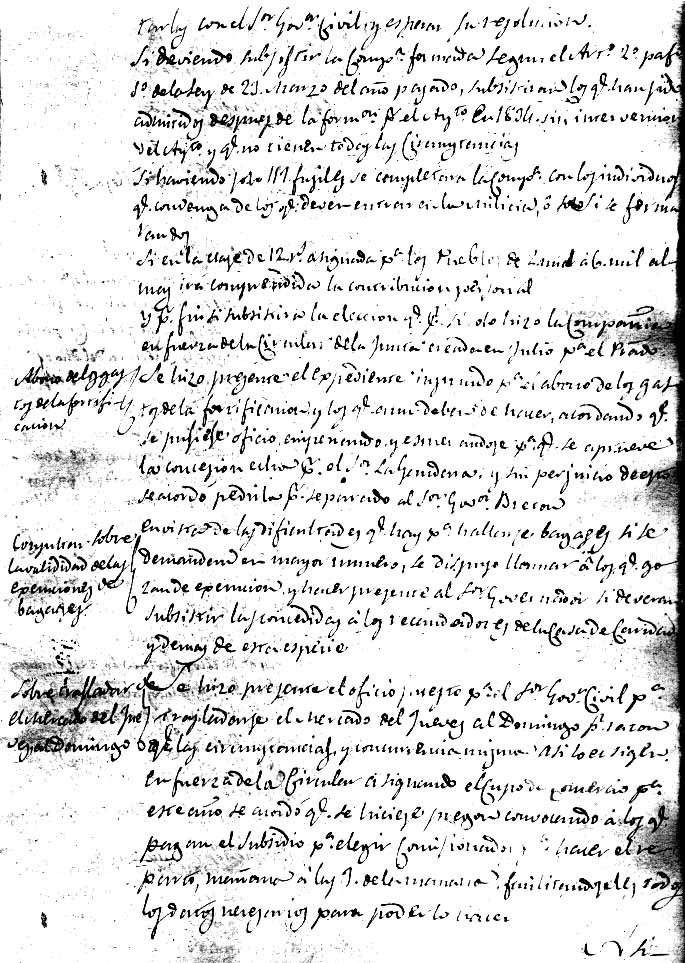 tarlas con el Sor Govor Civil y esperar su resolucion.
Si deviendo subsistir la Compa formada segun el Arto 2o
1o de la Ley de 23 Marzo del año pasado, subsistiran los qe han sido
admitidos despues de la formon pr el Aytto En 1834 sin intervencion
del Aytto y qe no tienen todas las Circunstancias
Si haviendo solo 111 fusiles se completara la Compa con los individuos
qe convenga de los qe deven entrar en la milicia, ô si se forma
ran dos
Si en la clase de 12 rs asignada pa los Pueblos de 2 mil à 6 mil al
mas ira comprendida la contribucion personal
y pr fin si subsistira la eleccion qe pr si solo hizo la Compañia
en fuerza de la Circular de la Junta creada en Julio pa el Prado.
Abono de los gas
tos de la fortifi
cacion
Se hizo presente el expediente instruido pa el abono de los gas
tos de la fortificacion y los qe aun deben de hacer, acordando qe
se pusiese oficio, y esmerandose pa qe se aprueve
la concesion echa pr el Sor La Hendera, y sin perjuicio de esto
se acordó pedirla pr separado al Sor Govor Breton
Consultar sobre
la valididad de las
exenciones de
bagages
En vista de las dificultades qe hay pa hallarse bagages si se
demandan en mayor numero, se dispuso llamar â los qe go
zan de exencion, y hacer presente al Sor Governador si deveran
subsistir las concedidas à los recaudadores de la Casa de Caridad
y demas de esta especie
Sobre trasladar
el Mercado del Jue
ves al Domingo
Se hizo presente el oficio puesto pr el Sor Govr Civil pa
trasladarse el Mercado del Jueves al Domingo pr razon
de las circunstancias, y concurrencia misma asi lo exigen.
En fuerza de la Circular asignando el Cupo de Comercio pa
este año, se acordó qe se hiciese pregon convocando à los qe
pagan el subsidio pa elegir Comisionados pa hacer el re
parto, mañana à las 9 de la manana facilitandoseles todos
los datos necesarios para poderlo hacer
Si